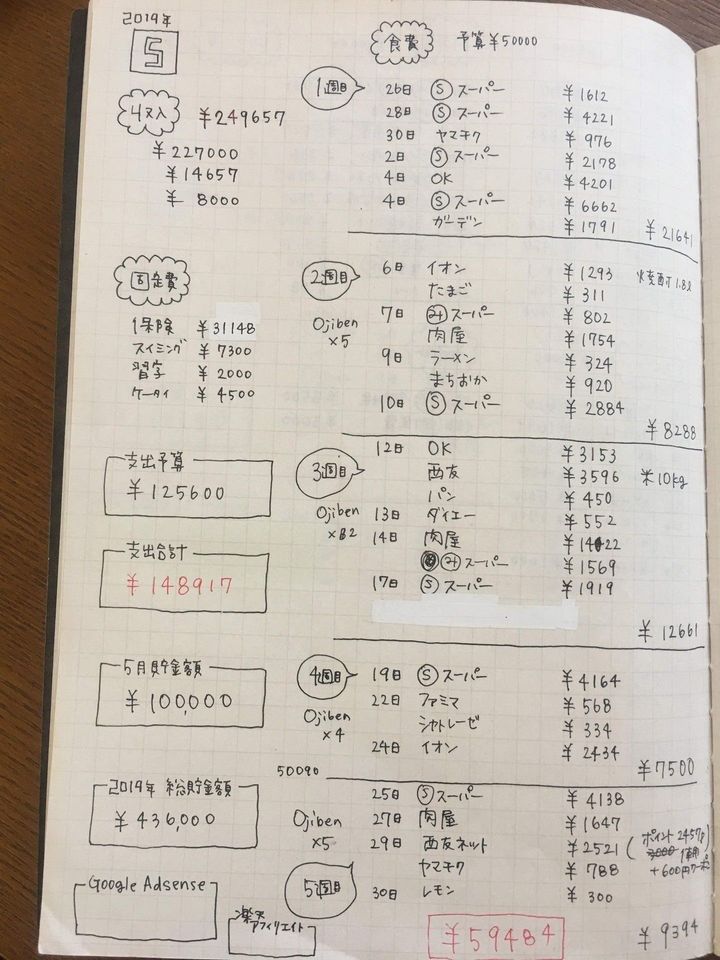 2019年
5
収入 ¥249657
¥227000
¥14657
¥ 8000
固定費
保険 ¥31148
スイミング ¥7300
習字 ¥2000
ケータイ ¥4500
支出予算
¥125600
支出合計
¥148917
5月貯金額
¥100,000
2019年 総貯金額
¥436,000
Google Adsense
楽天
アフィリエイト
食費 予算¥50000
1週目
26日 Ⓢスーパー ¥1612
28日 Ⓢスーパー ¥4221
30日 ヤマモク ¥976
2日 Ⓢスーパー ¥2178
4日 OK ¥4201
4日 Ⓢスーパー ¥6662
ガーデン ¥1791
¥21641
2週目
Ojiben
×5
6日 イオン ¥1293
たまご ¥311
7日 スーパー ¥802
肉屋 ¥1754
9日 ラーメン ¥324
まちおか ¥920
10日 Ⓢスーパー ¥2884
1.8ℓ
¥8288
3週目
Ojiben
×2
12日 OK ¥3153
西友 ¥3596 米10kg
パン ¥450
13日 ダイエー ¥552
14日 肉屋 ¥1422
スーパー ¥1569
17日 Ⓢスーパー ¥1919
¥12661
4週目
Ojiben
×4
19日 Ⓢスーパー ¥4164
22日 ファミマ ¥568
シャトレーゼ ¥334
24日 イオン ¥2434
¥7500
50090
Ojiben
×5
5週目
25日 Ⓢスーパー ¥4138
27日 肉屋 ¥1647
29日 西友ネット ¥2521
(ポイント2457
使用
+600円クーポン)
ヤマモク ¥788
30日 レモン ¥300
¥59484
¥9394